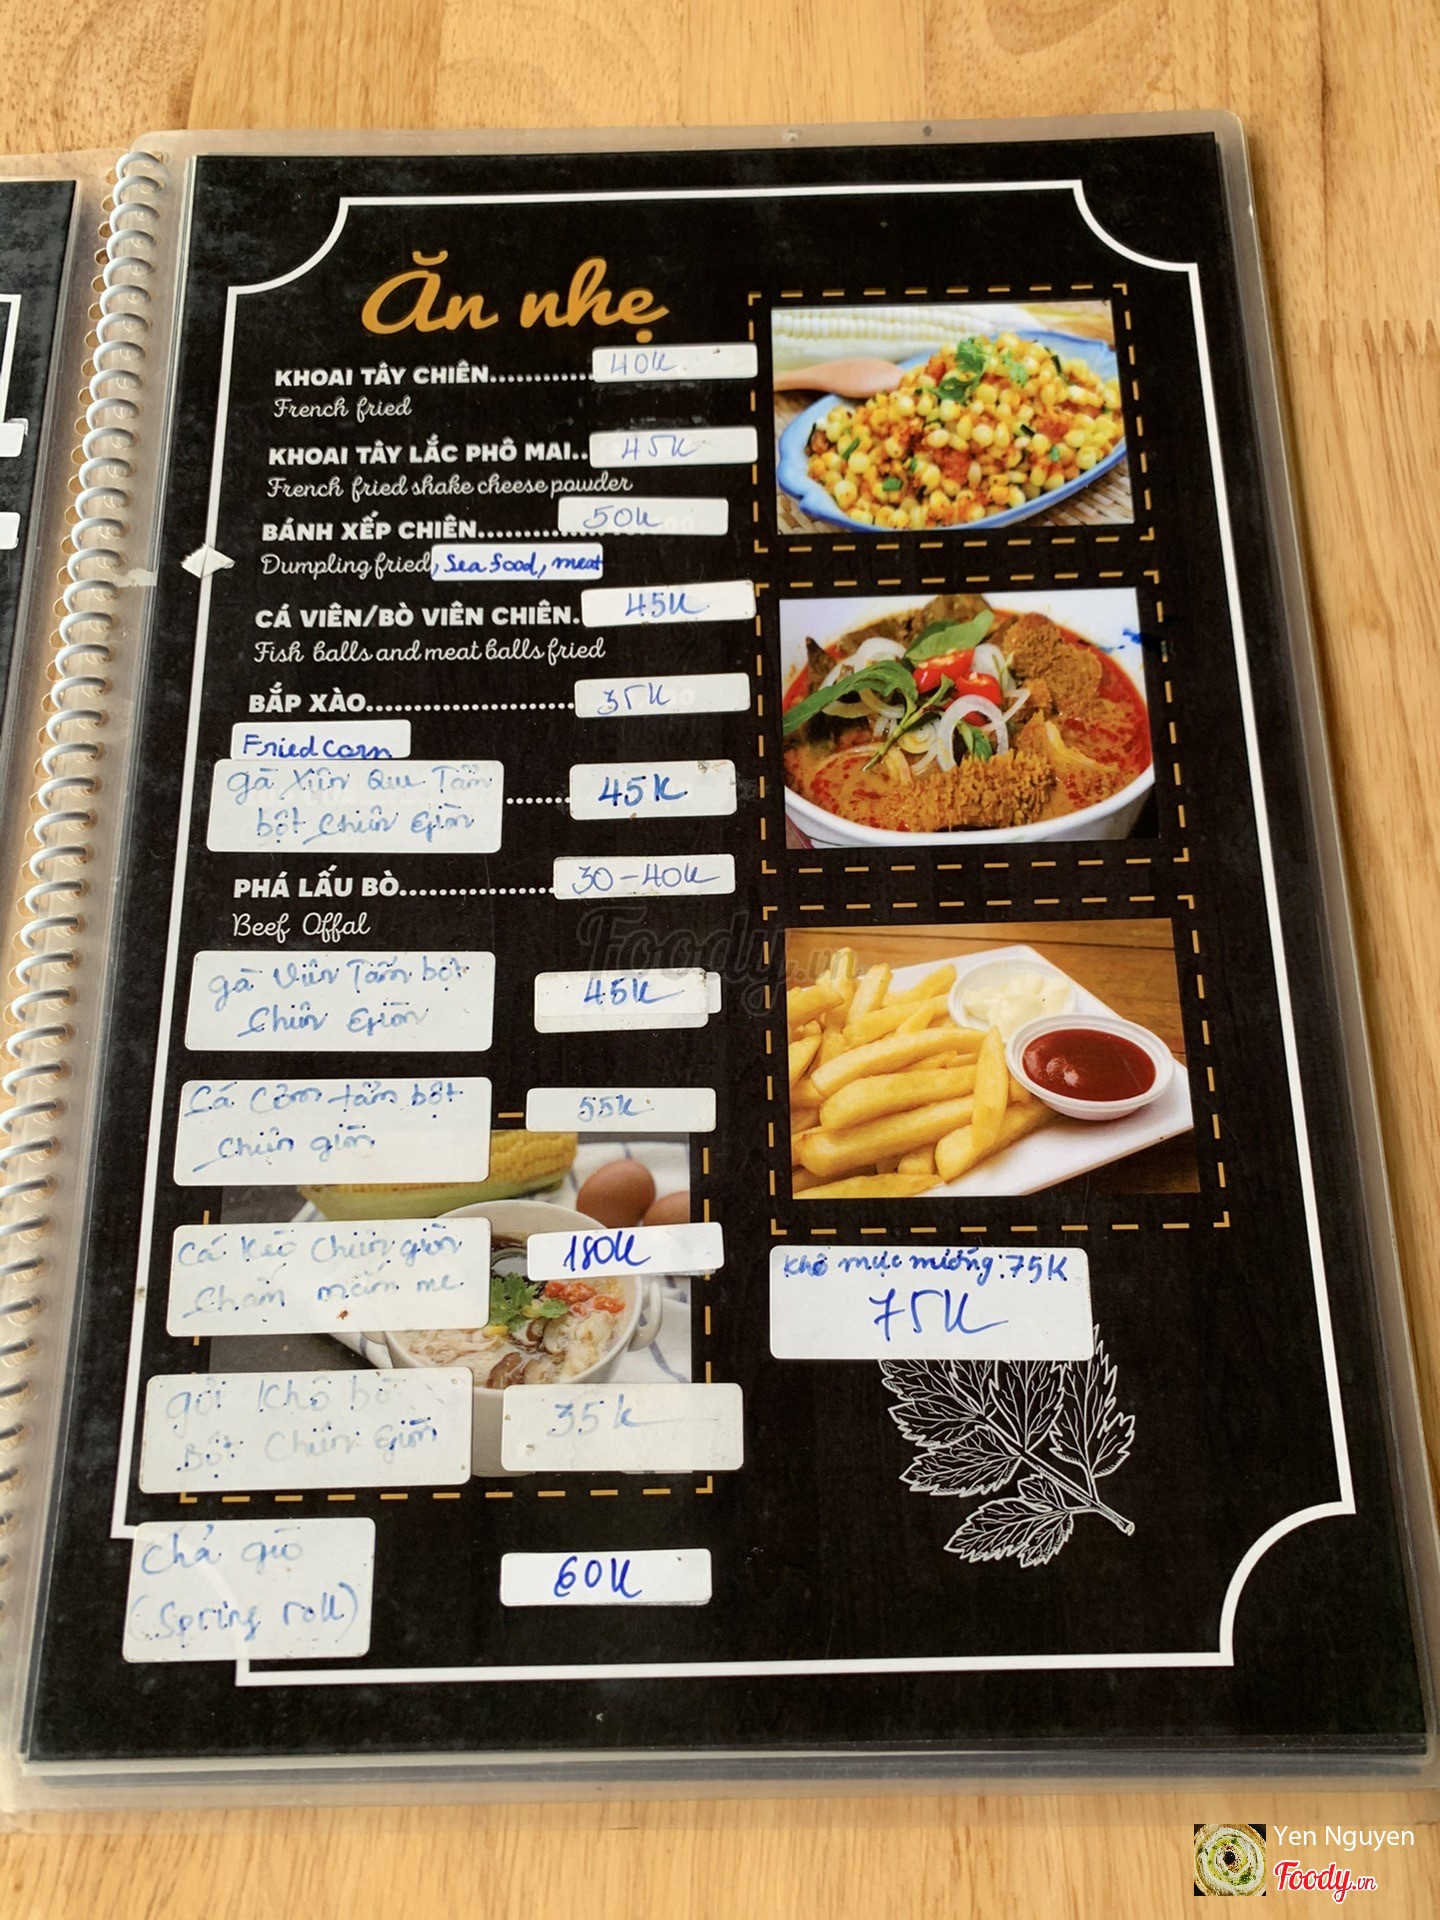 Ăn nhẹ
KHOAI TÂY CHIÊN............ 40K.
French fried
KHOAI TÂY LẮC PHÔ MAI.. 45K
French fried shake cheese powder
BÁNH XẾP CHIÊN........... 50K
Dumpling fried, Sea food, meat
CÁ VIÊN/BÒ VIÊN CHIÊN. 45K
Fish balls and meat balls fried
BẮP XÀO...................... 35K
Fried corn
gà Xiên Que Tẩm ...... 45K
bột Chiên Giòn
PHÁ LẤU BÒ................ 30-40K
Beef Offal
gà Viên Tẩm bột 45K
Chiên Giòn
Cá Cơm tẩm bột 55K
Chiên giòn
Cá Kèo Chiên giòn 180K
Chấm mắm me
gỏi Khô bò 35K
Bột Chiên Giòn
Chả giò 60K
(Spring roll)
Khô mực miếng: 75K
75K
Foody.vn
Yen Nguyen
Foody.vn